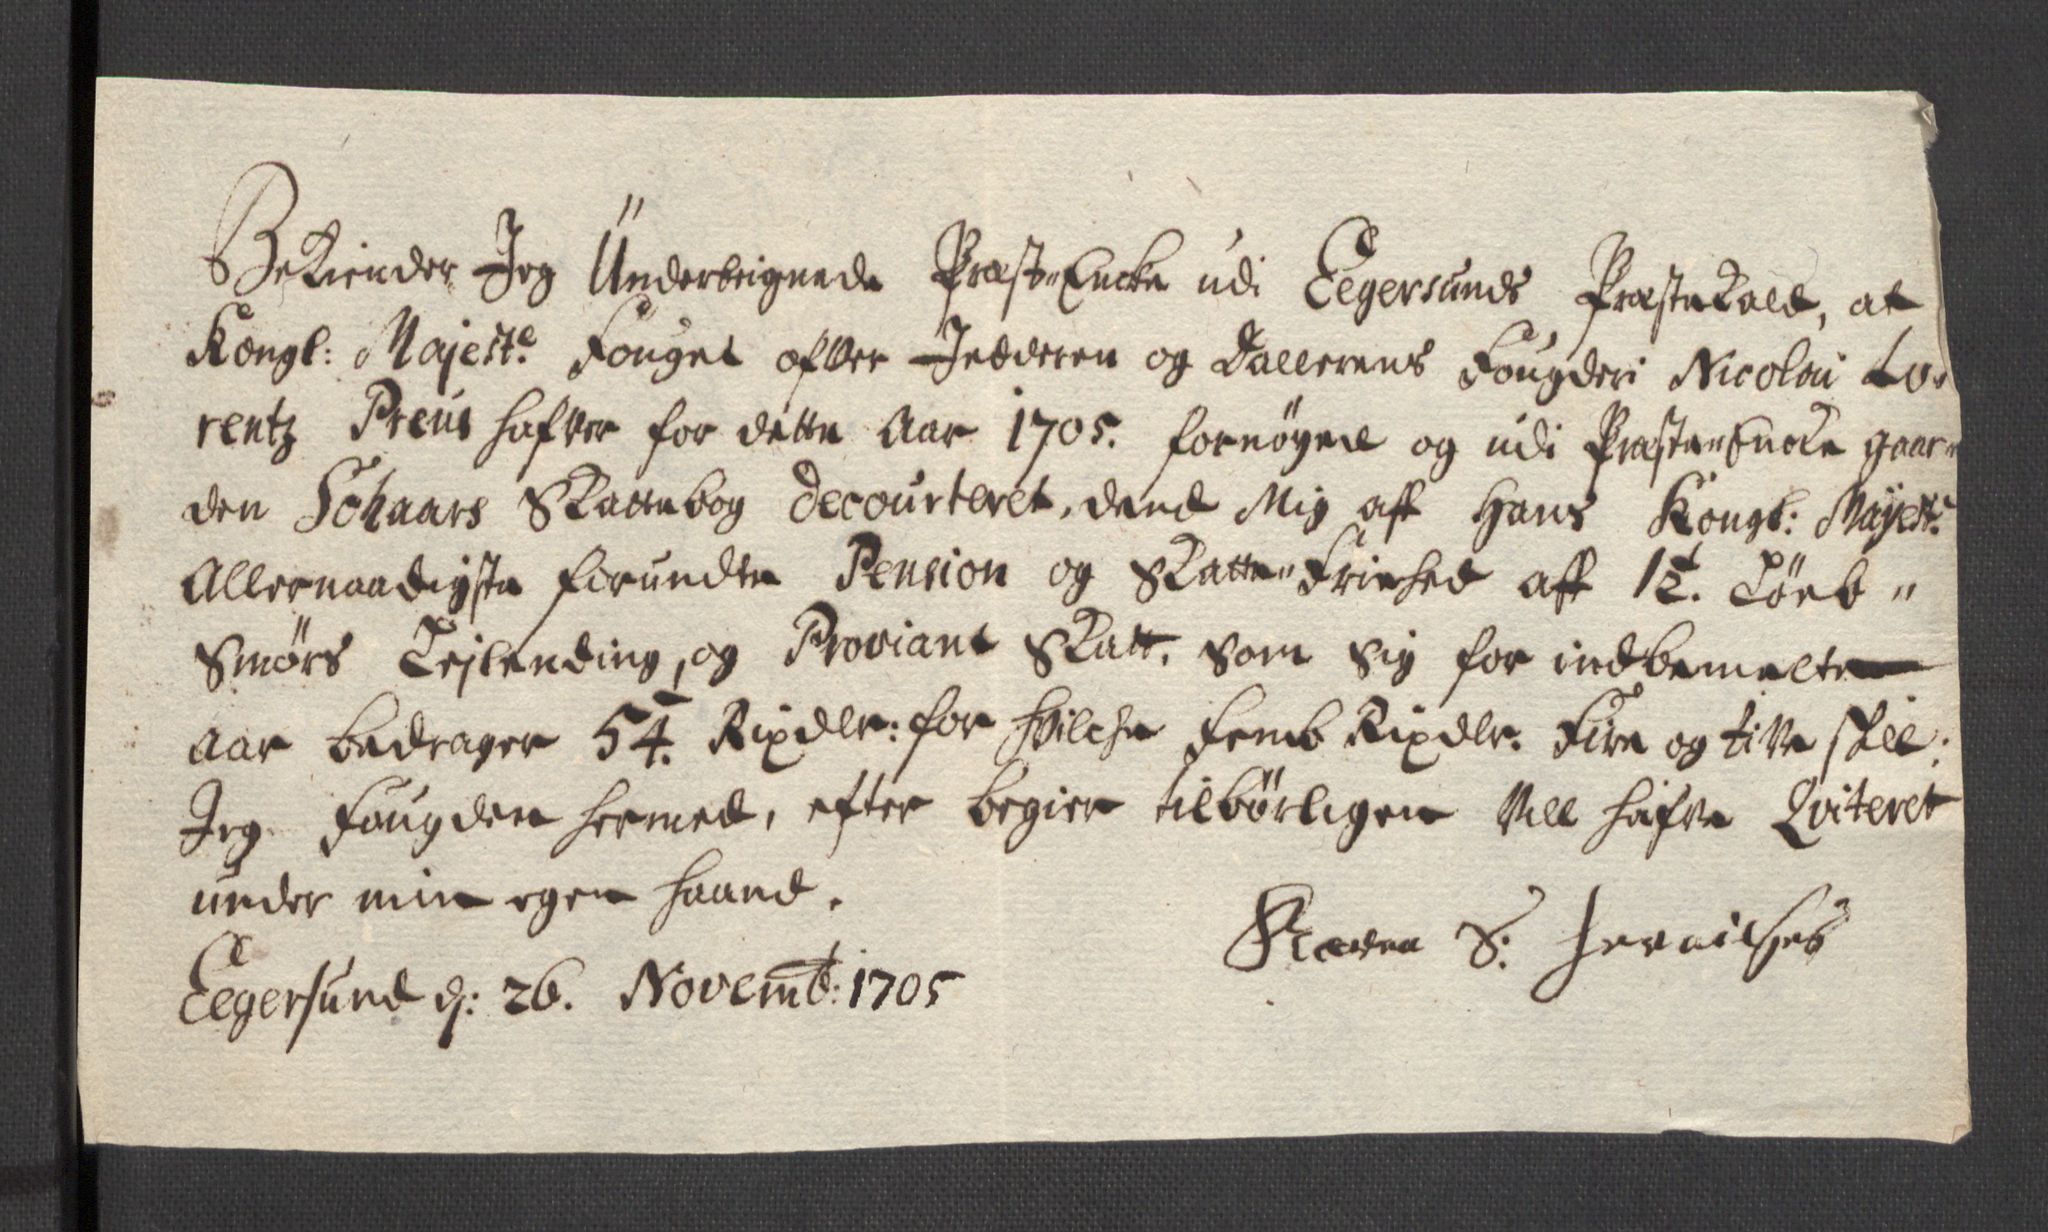 Bekiender Jeg Underteignede Præst=Encke udi Eegersunds Præstekald, at
Kongl: Majest:s Fouget ofver Jædderen og Dallerens Fougderi Nicolai Lo=
rentz Preus hafver for dette Aar 1705. fornøyed og udi Præste=Encke gaar=
den Schaars Skattebog decourteret, dend Mig aff Hans Kongl: Mayest:s
Allernaadigste forundte Pension og Skatte=Friehed aff 1½. Løeb=
Smørs Lejlending, og Proviant Skatt, som sig for indbemelte
aar bedrager 5¼. Rixdlr: for hvilche Femb Rixdlr. Fire og tive skill:
Jeg Fougden hermed, efter begier tilbørligen Vill hafve Qviteret
under min egen haand.
Eegersund d: 26. Novemb: 1705
S: